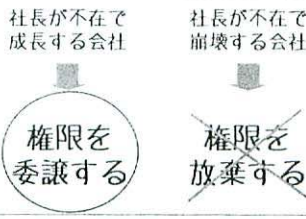 社長が不在で
成長する会社
権限を
委譲する
社長が不在で
崩壊する会社
権限を
放棄する